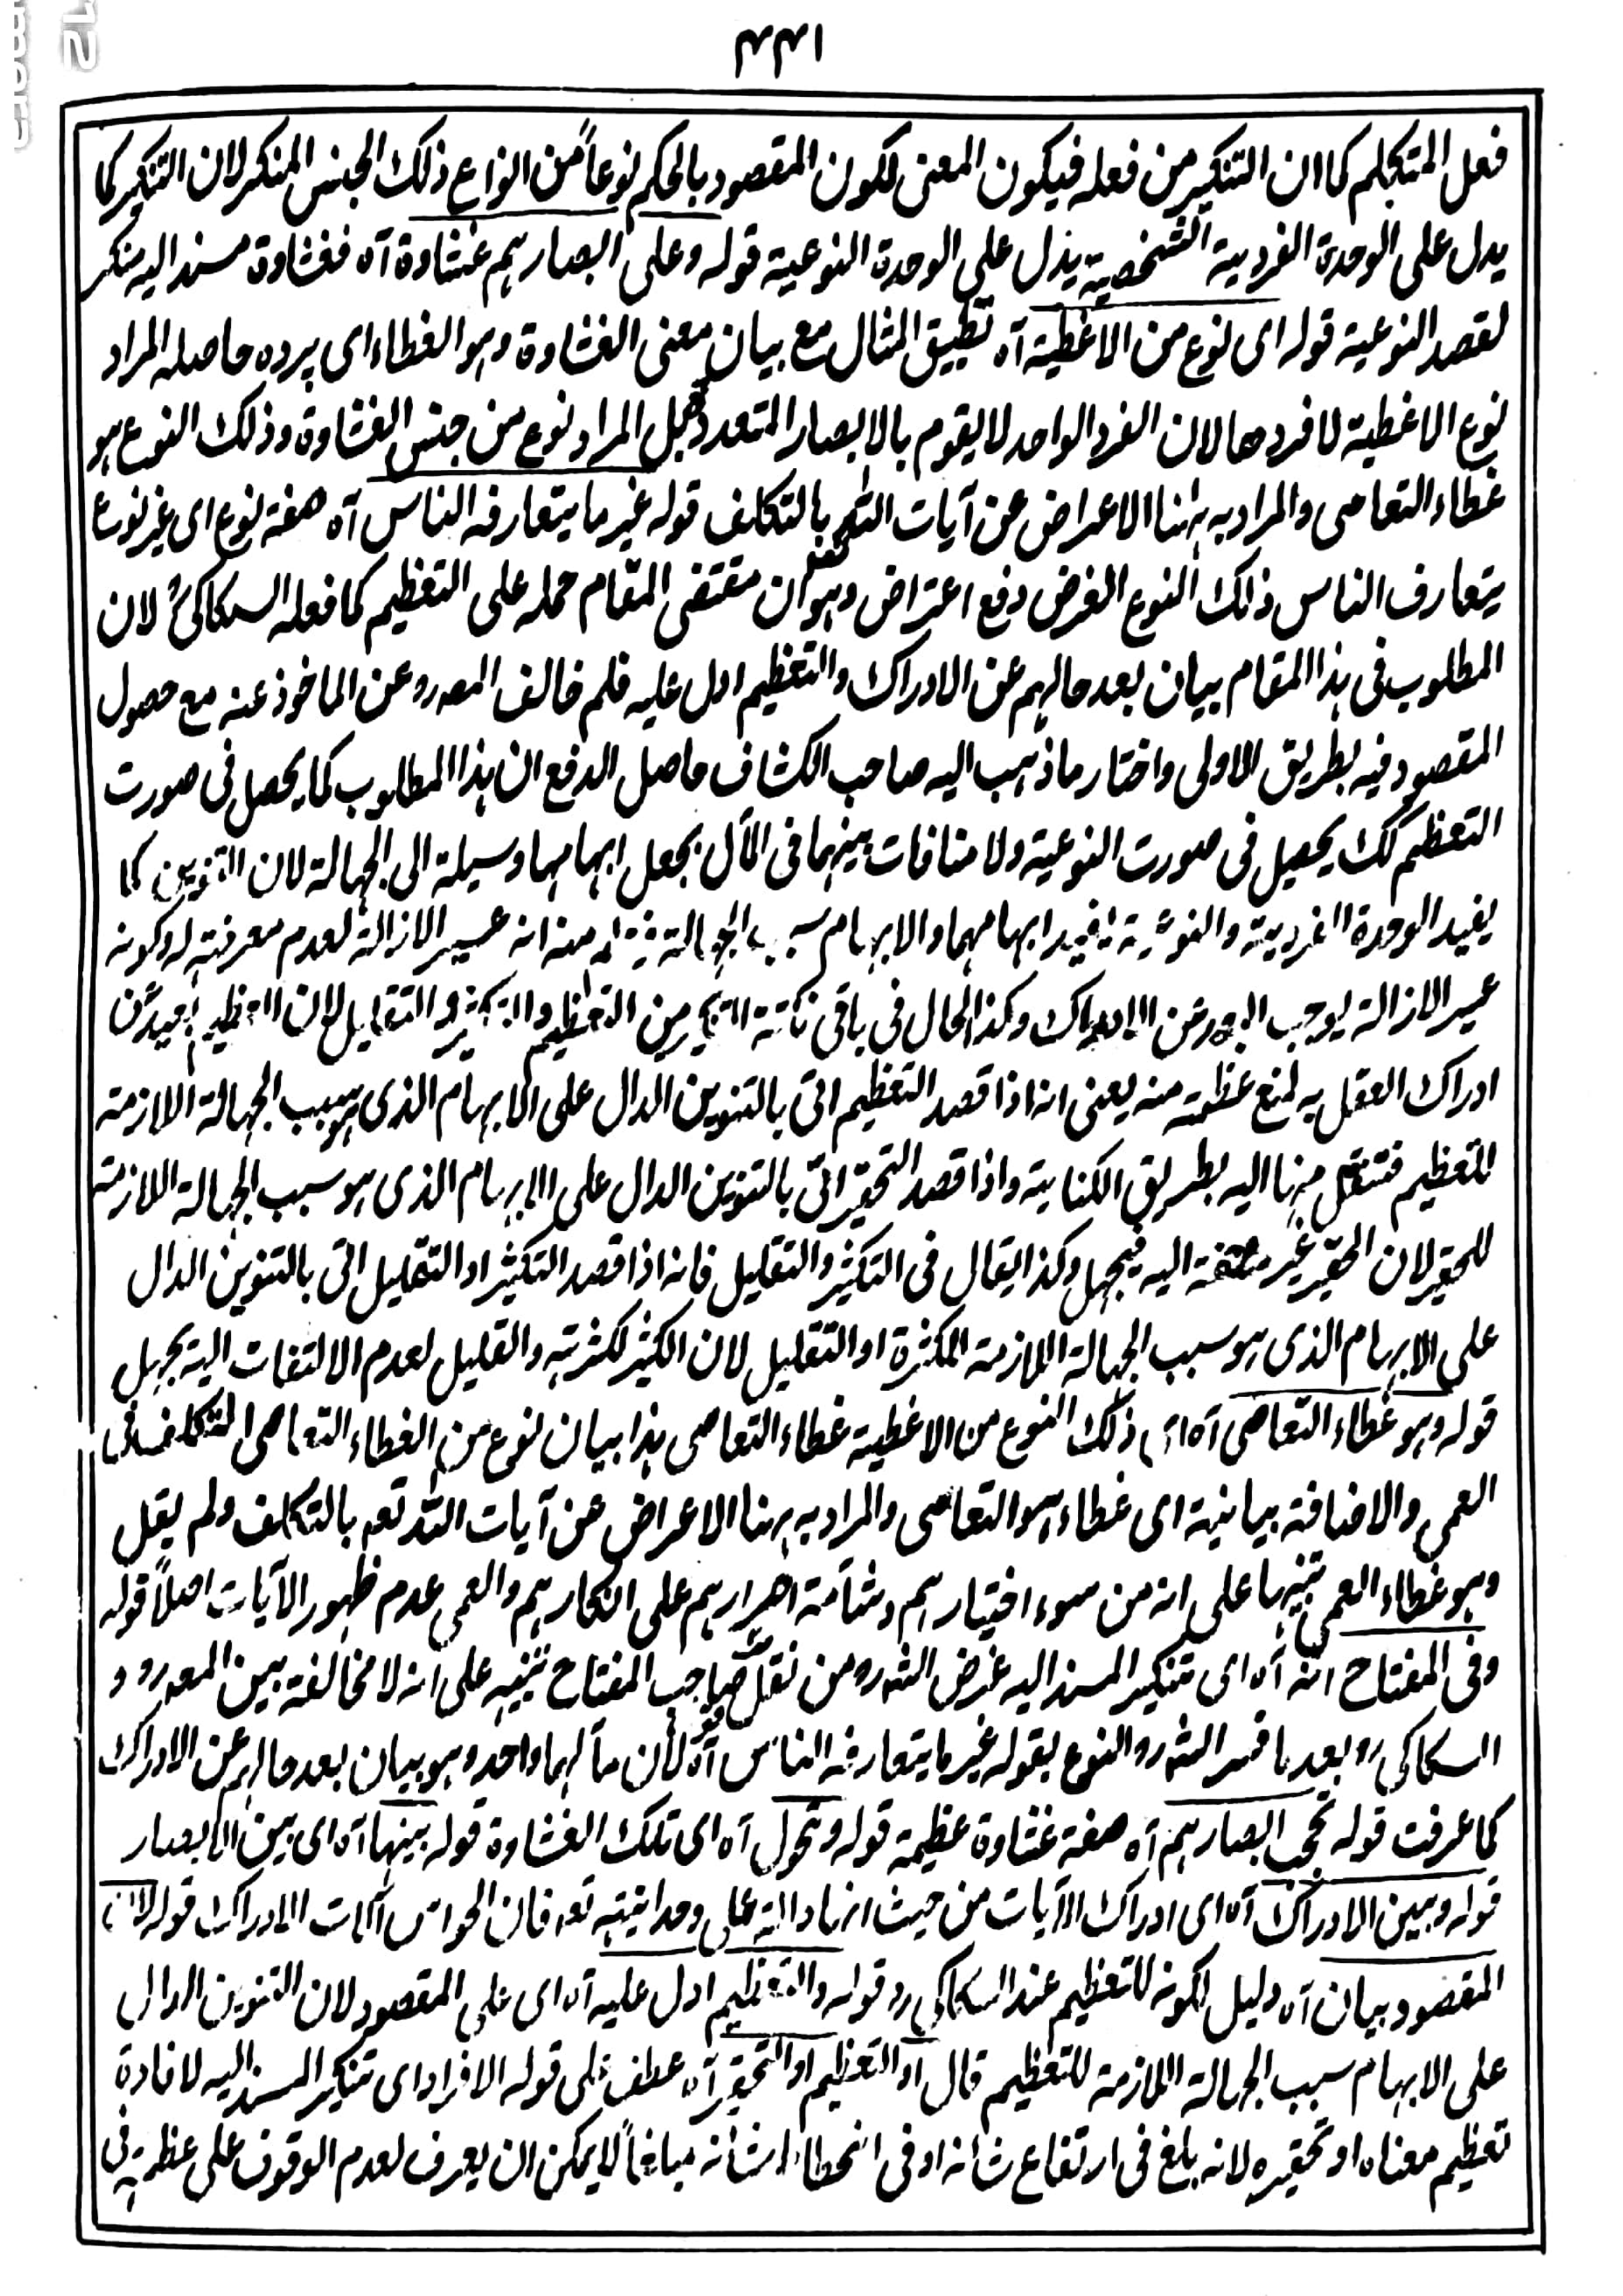 ٤٤١
فعل المتكلم كما ان التنكير من فعله فيكون المعنى لكون المقصود بالحكم نوعاً من انواع ذلك الجنس المنكر لان التنكير كما
يدل على الوحدة الفردية الشخصية يدل على الوحدة النوعية قوله وعلى ابصارهم غشاوة آه فغشاوة مسند اليه منكر
لقصد النوعية قوله اى نوع من الاغطية آه تطبيق المثال مع بيان معنى الغشاوة وهو الغطاء اى پرده حاصله المراد
نوع الاغطية لا فردها لان الفرد الواحد لا يقوم بالابصار المتعددة بل المراد نوع من جنس الغشاوة وذلك النوع هو
غطاء التعامى والمراد به هنا الاعراض عن آيات الله بالتكلف قوله غير ما يتعارفه الناس آه صفة نوع اى غير نوع
يتعارف الناس ذلك النوع الغرض دفع اعتراض وهو ان مقتضى المقام حمله على التعظيم كما فعله السكاكىؒ لان
المطلوب فى هذا المقام بيان بعد حالهم عن الادراك والتعظيم ادل عليه فلم خالف المص رو عن الماخوذ عنه مع حصول
المقصود فيه بطريق الاولى واختار ما ذهب اليه صاحب الكشاف حاصل الدفع ان هذا المطلوب كما يحصل فى صورت
التعظيم كك يحصل فى صورت النوعية ولا منافات بينهما فى المآل بجعل ابهامها وسيلة الى الجهالة لان التنوين كما
يفيد الوحدة الفردية والنوعية يفيد ابهامهما والابهام سبب الجهالة منه انه عسير الازالة لعدم معرفته له وكونه
عسير الازالة يوجب البعد عن الادراك وكذا الحال فى باقى نكتة التنكير من التعظيم والتكثير والتقليل لان التعظيم يبعد عن
ادراك العقل به لمنع عظمته منه يعنى انه اذا قصد التعظيم اتى بالتنوين الدال على الابهام الذى هو سبب الجهالة اللازمة
للتعظيم فتنتقل منها اليه بطريق الكناية واذا قصد التحقير اتى بالتنوين الدال على الابهام الذى هو سبب الجهالة اللازمة
للحقير لان الحقير غير ملتفة اليه فيجهل وكذا يقال فى التكثير والتقليل فانه اذا قصد التكثير او التقليل اتى بالتنوين الدال
على الابهام الذى هو سبب الجهالة اللازمة للكثرة او التقليل لان الكثير لكثرته والقليل لعدم الالتفات اليه يجهل
قوله وهو غطاء التعامى آه اى ذلك النوع من الاغطية غطاء التعامى هذا بيان نوع من الغطاء التعامى التكلف فى
العمى والاضافة بيانية اى غطاء هو التعامى والمراد به هنا الاعراض عن آيات الله تعه بالتكلف ولم يقل
وهو غطاء العمى تنبيها على انه من سوء اختيارهم وشآمة اصرارهم على انكارهم والعمى عدم ظهور الآيات اصلاً قوله
وفى المفتاح انه آه اى تنكير المسند اليه غرض الشه رو من نقل صاحب المفتاح تنبيه على انه لا مخالفة بين المص رو و
السكاكى رو بعد ما فسر الشه رو النوع بقوله غير ما يتعارفه الناس آه لأن مآلهما واحد وهو بيان بعد حالهم عن الادراك
كما عرفت قوله تحجب ابصارهم آه صفة غشاوة عظيمة قوله وتحول آه اى تلك الغشاوة قوله بينها آه اى بين الابصار
قوله وبين الادراك آه اى ادراك الآيات من حيث انها دالة على وحدانيته تعه فان الحواس آلات الادراك قوله لان
المقصود بيان آه دليل لكونه للتعظيم عند السكاكى رو قوله والتعظيم ادل عليه آه اى على المقصود لان التنوين الدال
على الابهام سبب الجهالة اللازمة للتعظيم قال او التعظيم او التحقير آه عطف على قوله الافراد اى تنكير المسند اليه لافادة
تعظيم معناه او تحقيره لانه بلغ فى ارتفاع شانه او فى انحطاط شانه مبلغاً لا يمكن ان يعرف لعدم الوقوف على عظمته فى